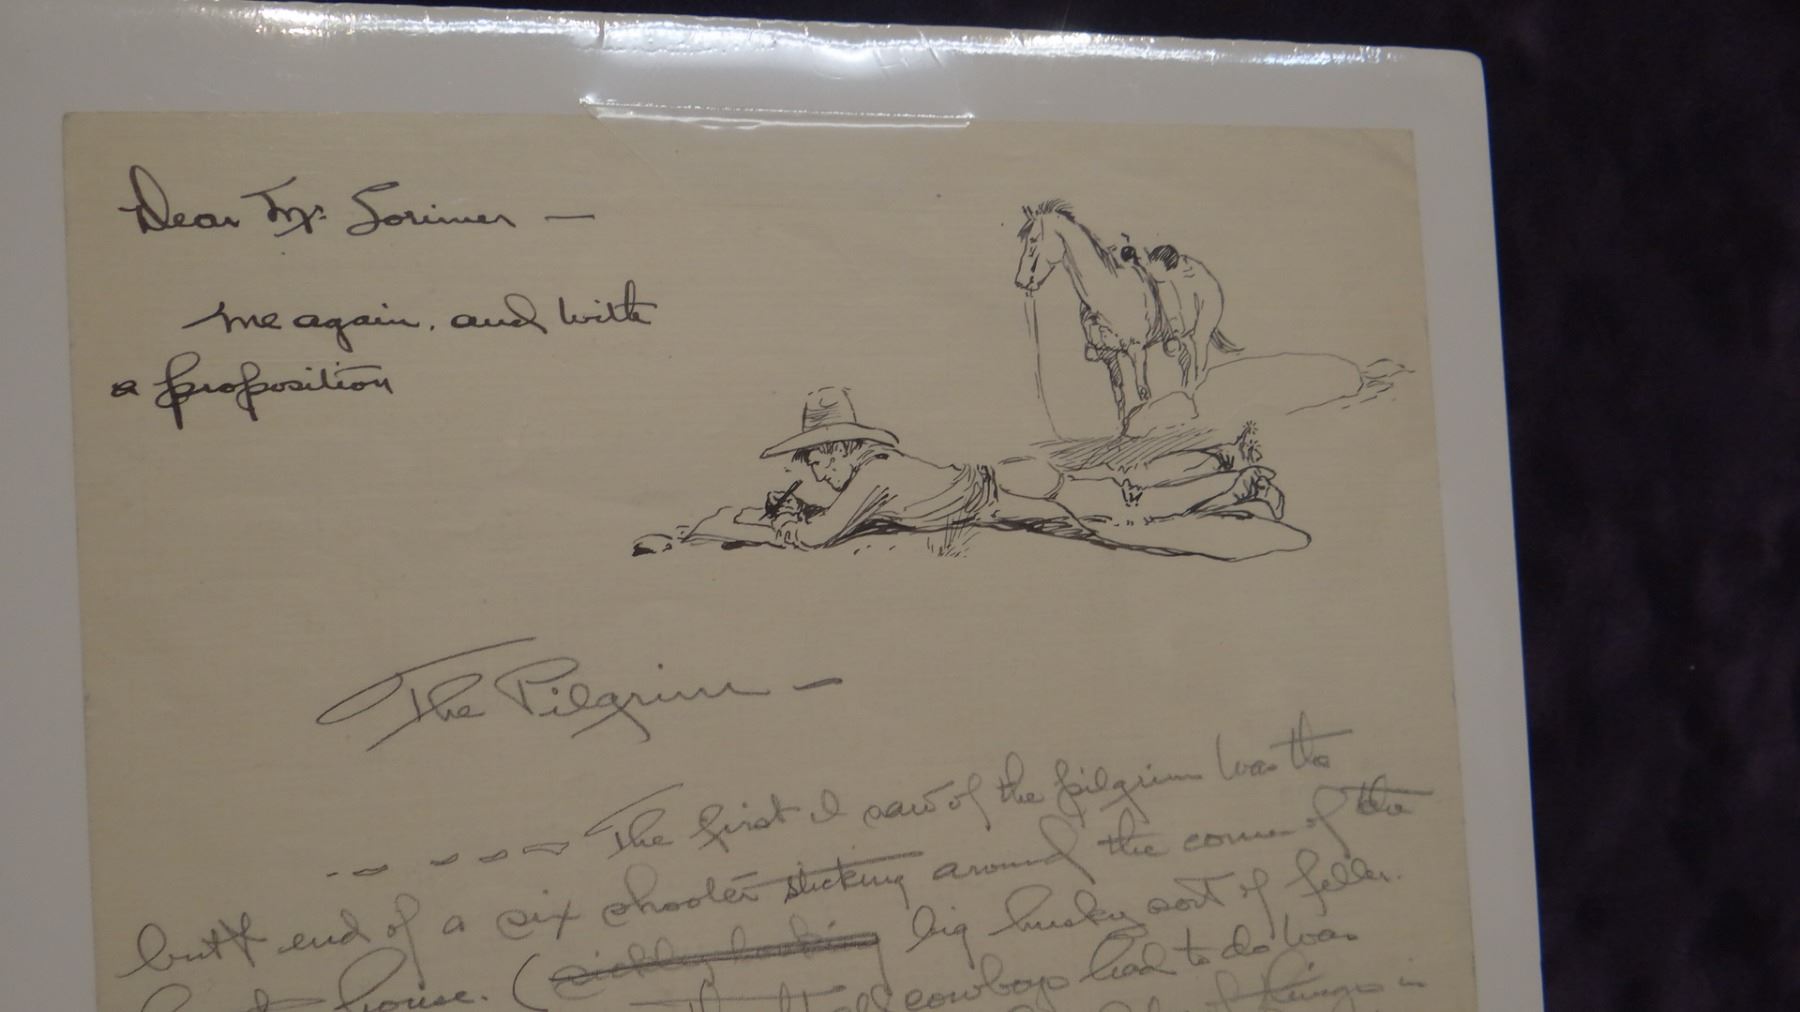 Dear Mr. Lorimer —
me again, and with
a proposition
The Pilgrim —
The first I saw of the pilgrim was the
butt end of a six shooter sticking around the corner of the
house. (sickly looking big husky sort of feller.
cowboys had to do was
things in